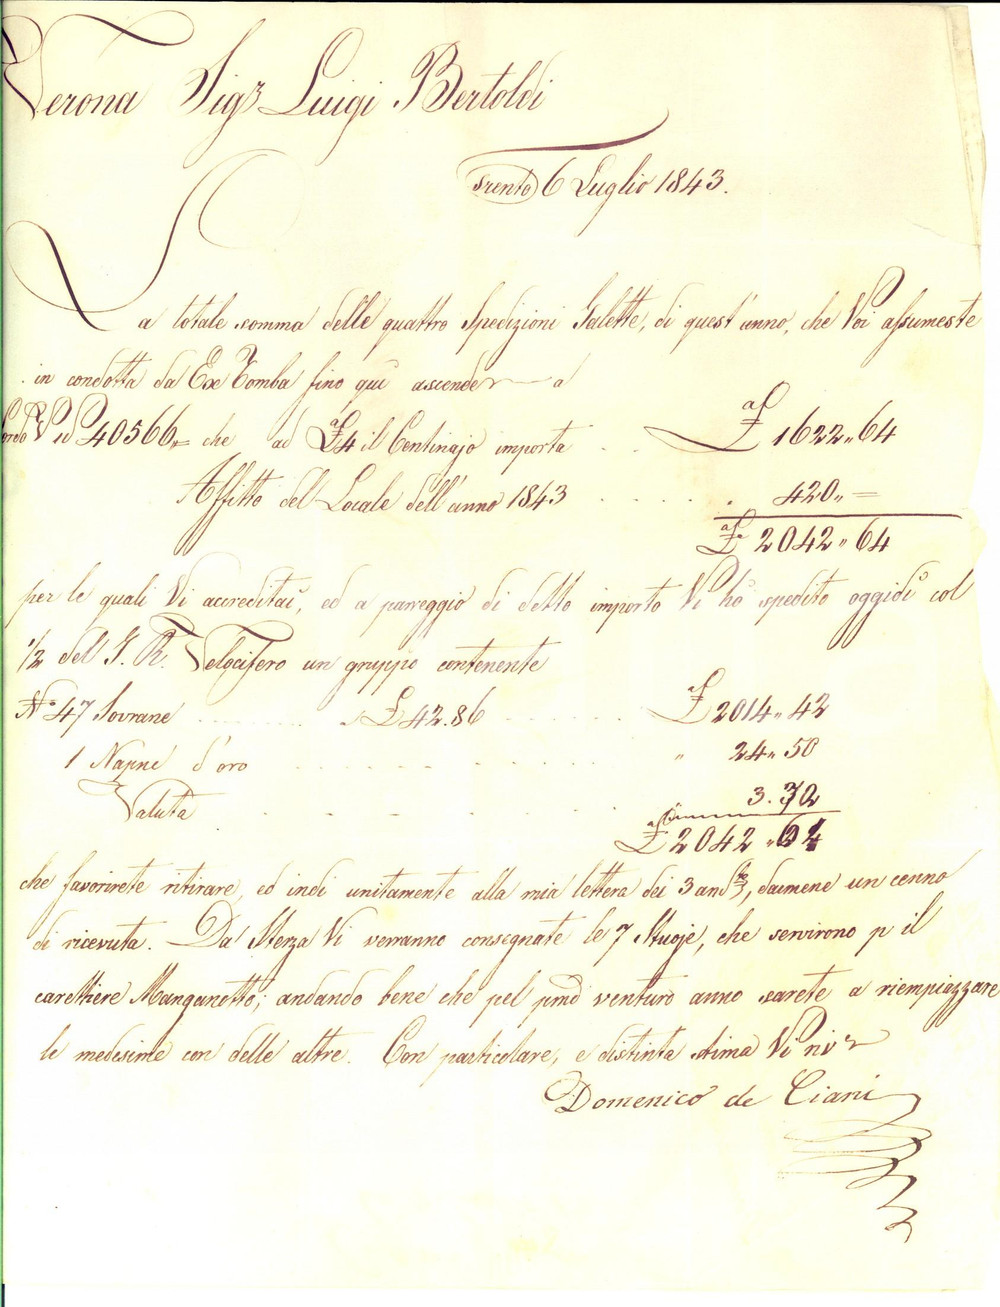 Verona Sigr Luigi Bertoldi
Trento 6 Luglio 1843.
La totale somma delle quattro Spedizioni Galette, di quest'anno, che Voi assumeste
in condotta da fino quì ascende a
40566,,= che ad £4 il Centinajo importa . . . a£ 1622,,64
Affitto del Locale dell'anno 1843 . . . . . . 420,,=
a£ 2042,,64
per le quali Vi accreditai, ed a pareggio di detto importo Vi ho spedito oggidì col
1/2 dell' I. R. Velocifero un gruppo contenente
No 47 Sovrane . . . . . a£ 42.86 . . . . . . a£ 2014,,42
1 Napne d'oro . . . . . . . . . ,, 24,,50
Valuta . . . . . . . . . 3.72
a£ 2042,,64
che favorirete ritirare, ed indi unitamente alla mia lettera dei 3 andte, darmene un cenno
di ricevuta. Da Sterza Vi verranno consegnate le 7 Stuoje, che servirono p il
carettiere Manganetto; andando bene che pel pmo venturo anno sarete a riempiazzare
le medesime con delle altre. Con particolare, e distinta stima Vi rivo
Domenico de Ciani